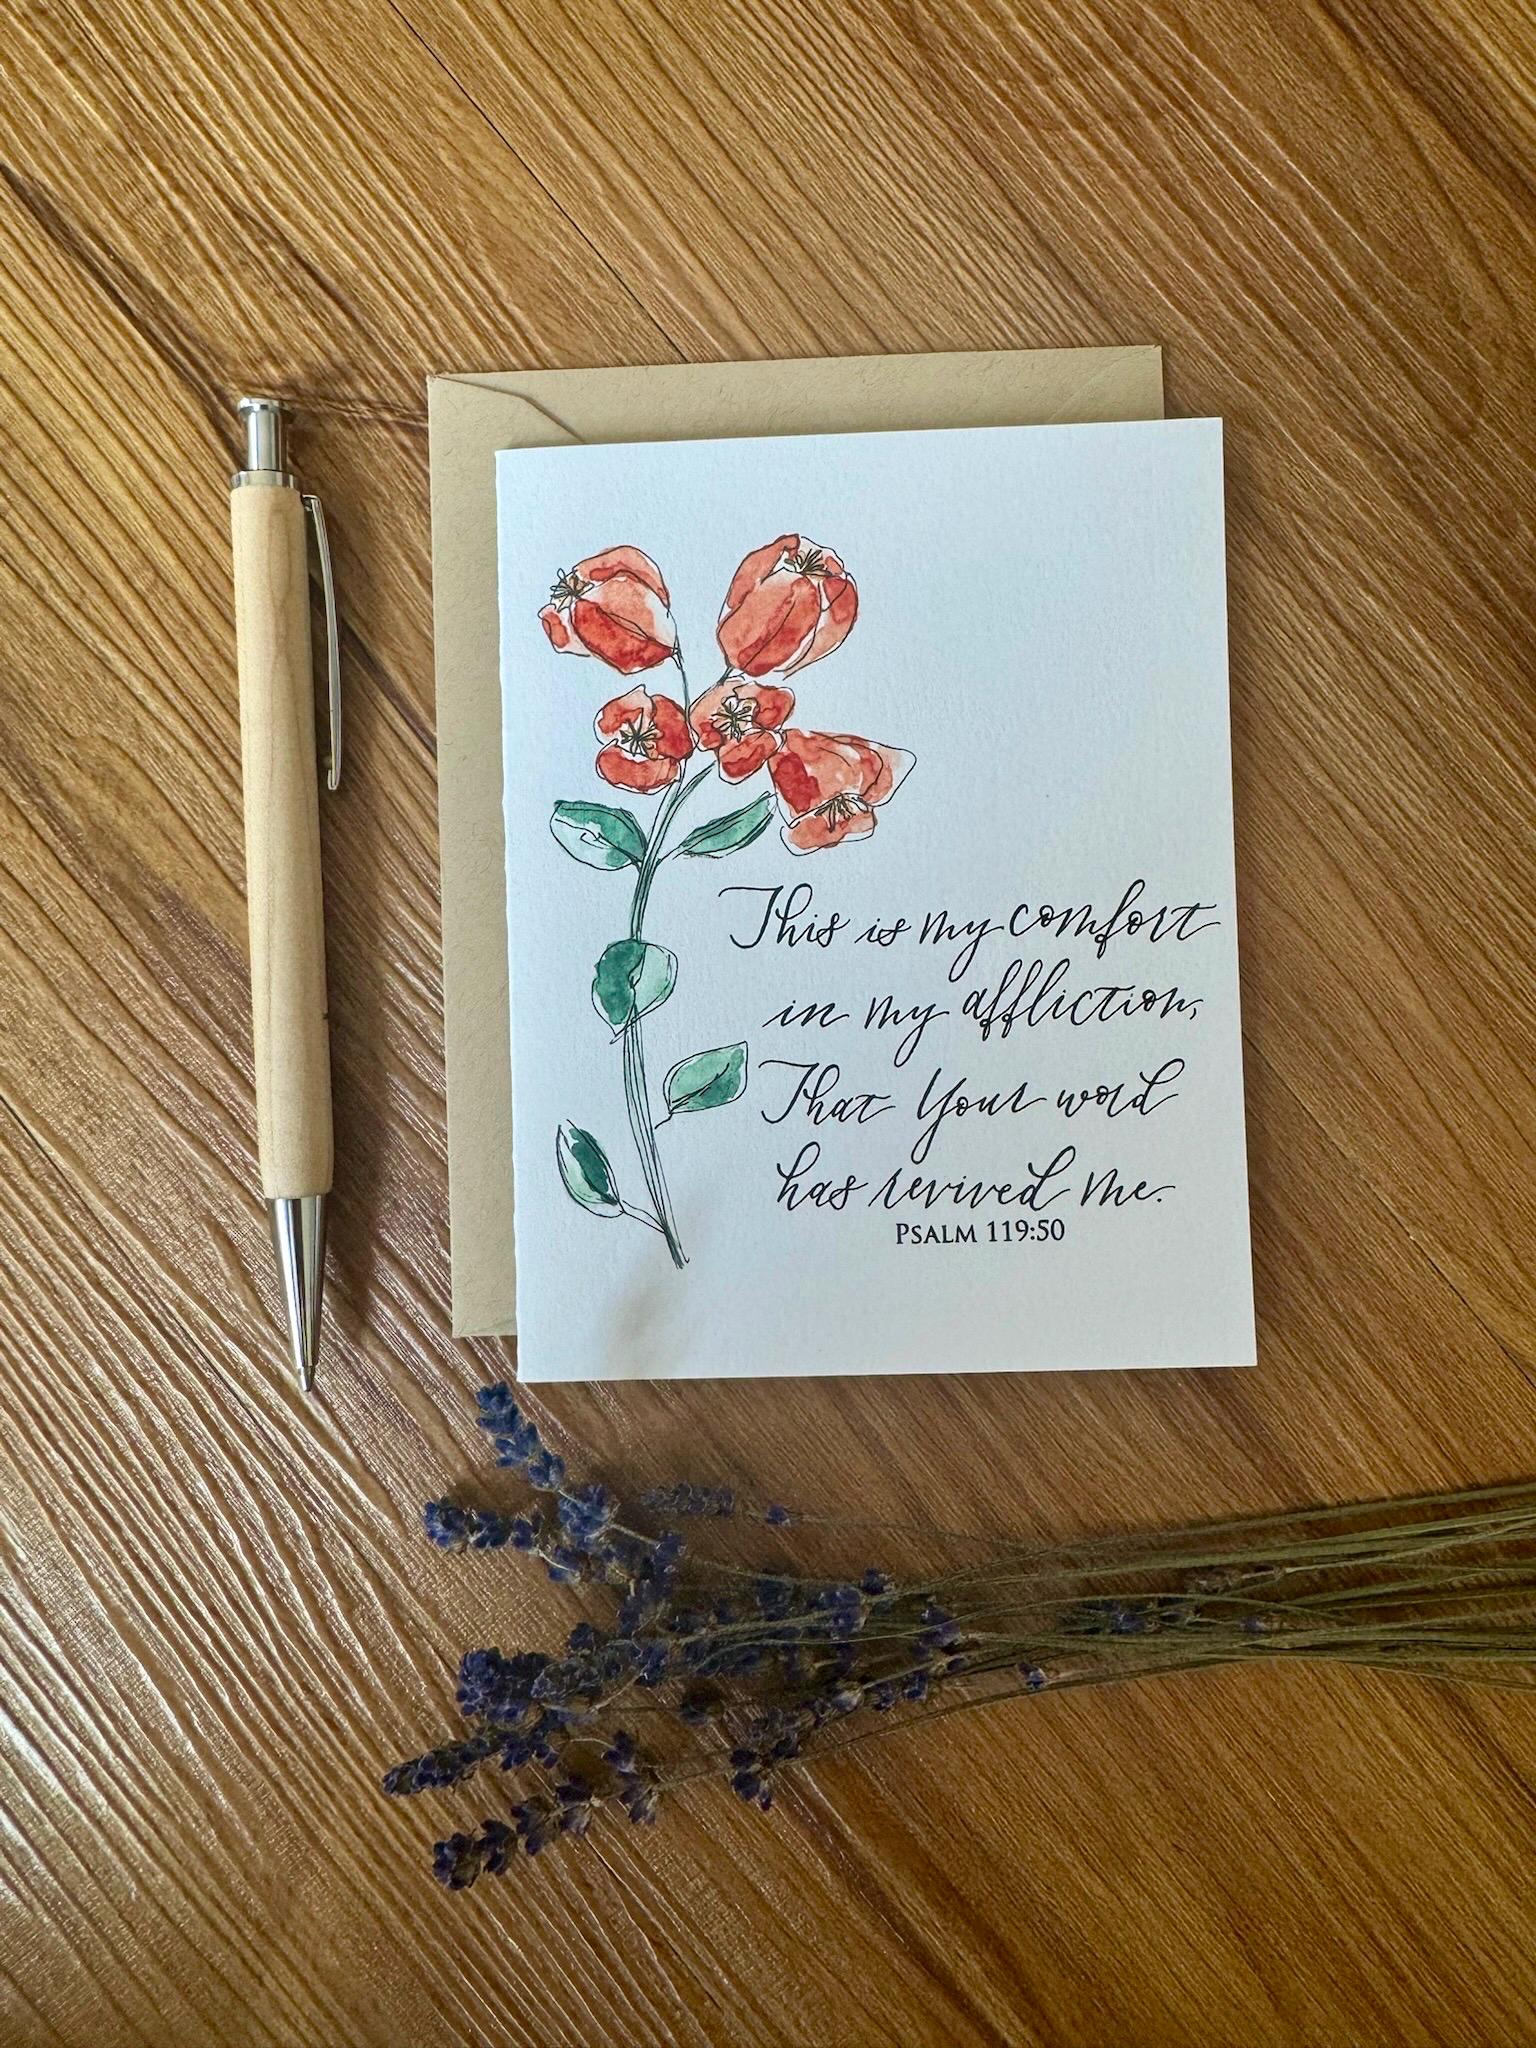 This is my comfort
in my affliction,
That Your word
has revived me.
PSALM 119:50